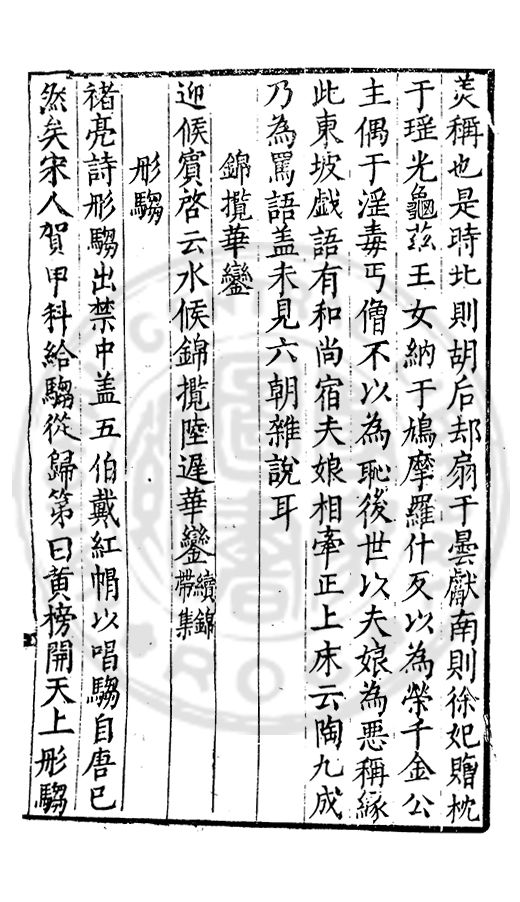 美稱也是時北則胡后却扇于曇獻南則徐妃贈枕
于瑶光龜茲王女納于鳩摩羅什反以為榮千金公
主偶于淫毒丐僧不以為恥後世以夫娘為惡稱緣
此東坡戯語有和尚宿夫娘相牽正上床云陶九成
乃為罵語盖未見六朝雜說耳
錦攬華鑾
迎候賓啓云水候錦攬陸遲華鑾續錦帶集
彤騶
褚亮詩彤騶出禁中盖五伯戴紅帽以唱騶自唐已
然矣宋人賀甲科給騶從歸第曰黄榜開天上彤騶